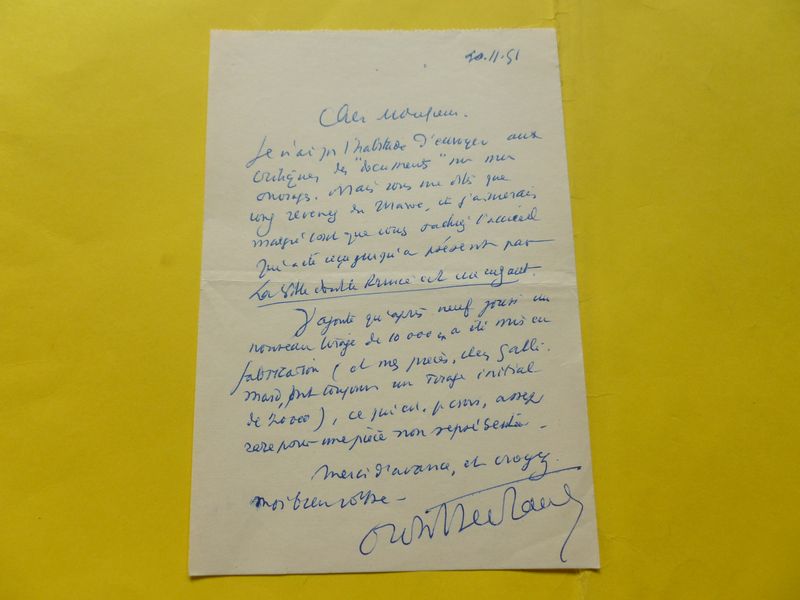 20.11.51
Cher Monsieur.
Je n'ai pas l'habitude d'envoyer aux
critiques des "documents" sur mes
ouvrages. Mais vous me dites que
vous revenez du Maroc, et j'aimerais
malgré tout que vous sachiez l'accueil
qui a été reçu jusqu'à présent par
La Ville dont le Prince est un enfant.
J'ajoute qu'après neuf jours un
nouveau tirage de 10 000 ex a été mis en
fabrication (et mes pièces, chez Galli-
mard, ont toujours un tirage initial
de 20 000), ce qui est, je crois, assez
rare pour une pièce non représentée.
Merci d'avance, et croyez
moi bien vôtre –
Montherlant